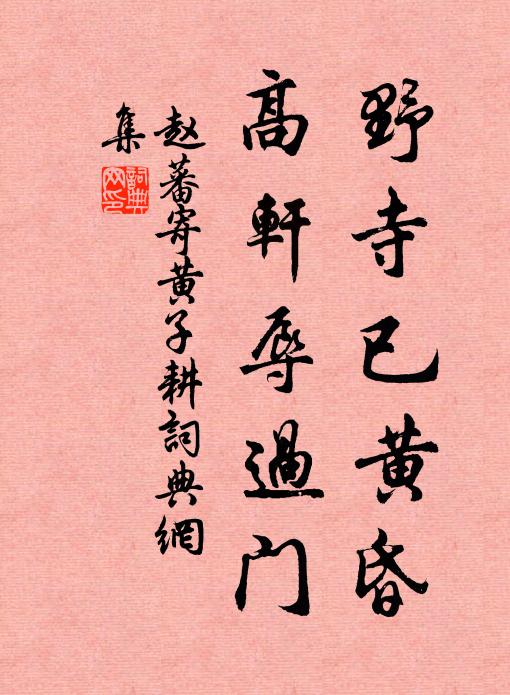 野寺已黄昏
高軒辱過門
赵蕃寄黄子耕詞典網
集
詞典网印